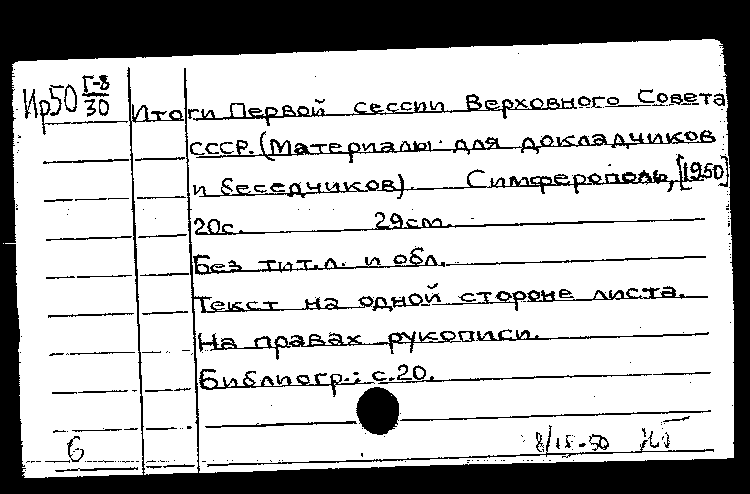 Ир50 Г-8/30
Итоги Первой сессии Верховного Совета
СССР. (Материалы для докладчиков
и беседчиков) Симферополь, [1950]
20с. 29см.
Без тит.л. и обл.
Текст на одной стороне листа.
На правах рукописи.
Библиогр.: с.20.
6